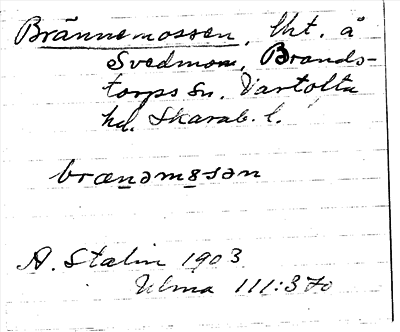 Brännemossen, tht. å
Svedmon, Brands-
torps sn. Vartofta
hd. Skarab. l.
brænəmɷsən
A. Stalin 1903
Ulma 111:370